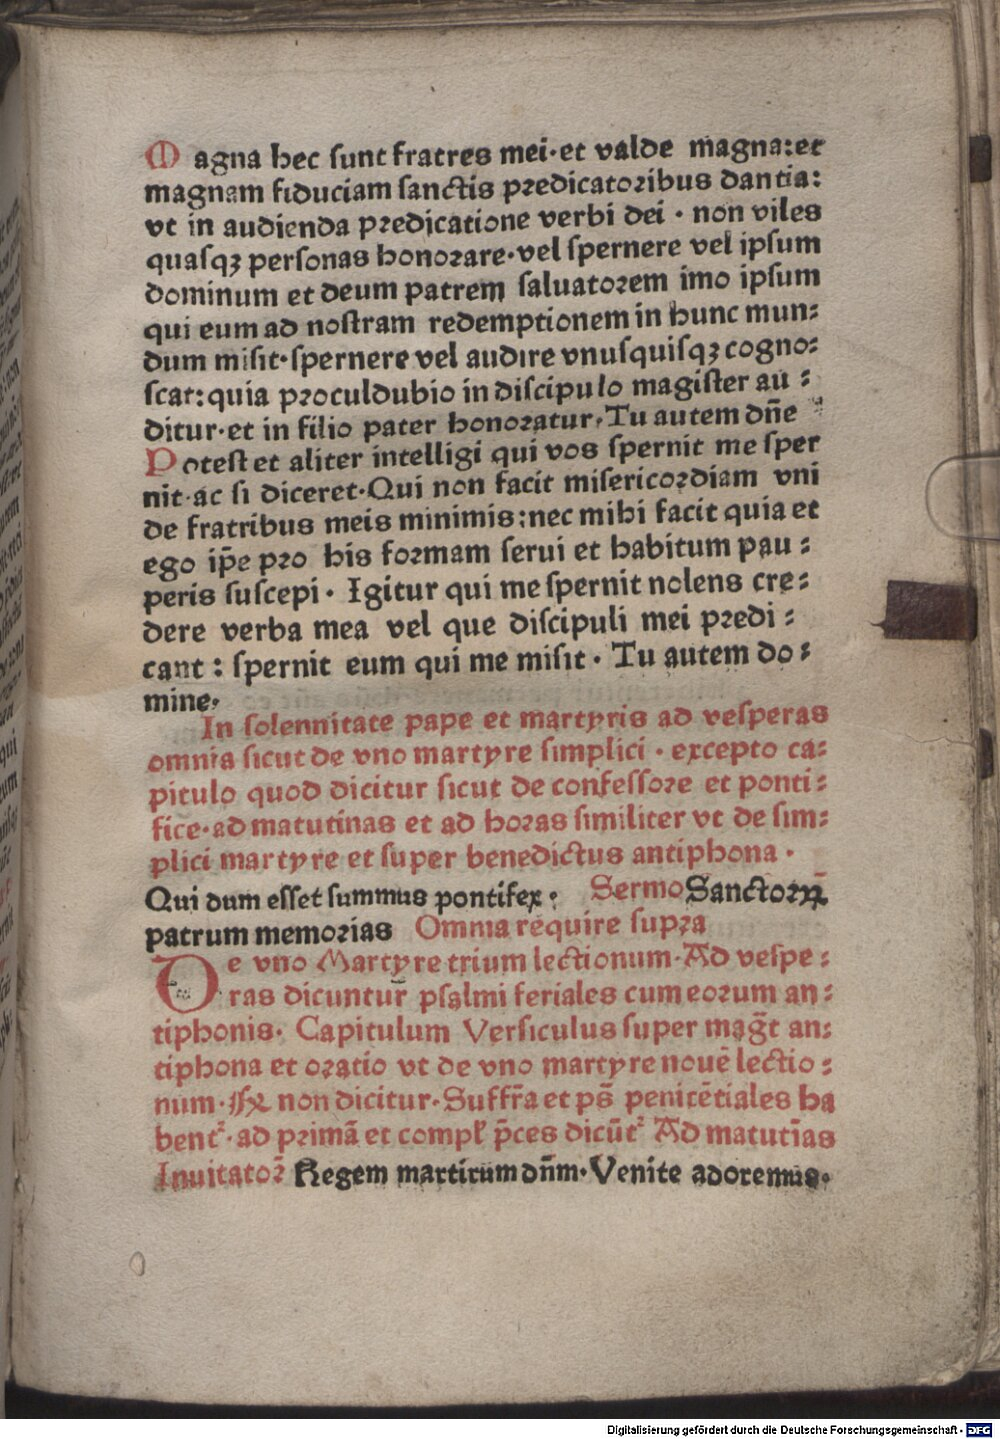 Magna hec sunt fratres mei·et valde magna:et
magnam fiduciam sanctis predicatoribus dantia:
vt in audienda predicatione verbi dei · non viles
quasqꝫ personas honorare·vel spernere vel ipsum
dominum et deum patrem saluatorem imo ipsum
qui eum ad nostram redemptionem in hunc mun⸗
dum misit·spernere vel audire vnusquisqꝫ cogno⸗
scat:quia proculdubio in discipulo magister au⸗
ditur·et in filio pater honoratur·Tu autem dn̄e
Potest et aliter intelligi qui vos spernit me sper
nit·ac si diceret·Qui non facit misericordiam vni
de fratribus meis minimis:nec mihi facit quia et
ego ip̄e pro his formam serui et habitum pau⸗
peris suscepi· Igitur qui me spernit nolens cre⸗
dere verba mea vel que discipuli mei predi⸗
cant : spernit eum qui me misit · Tu autem do⸗
mine·
In solennitate pape et martyris ad vesperas
omnia sicut de vno martyre simplici · excepto ca⸗
pitulo quod dicitur sicut de confessore et ponti⸗
fice·ad matutinas et ad horas similiter vt de sim⸗
plici martyre et super benedictus antiphona ·
Qui dum esset summus pontifex· Sermo Sanctoꝝ
patrum memorias Omnia require supra
De vno Martyre trium lectionum·Ad vespe⸗
ras dicuntur psalmi feriales cum eorum an⸗
tiphonis· Capitulum Versiculus super mag̅t an⸗
tiphona et oratio vt de vno martyre nouē lectio⸗
num·℟ non dicitur·Suffr̄a et ps̄ penitētiales ha
bent᷑·ad primā et compl̕ p̄ces dicūt᷑ Ad matutīas
Inuitator̄ Regem martirum dn̄m·Venite adoremus·
Digitalisierung gefördert durch die Deutsche Forschungsgemeinschaft - DFG